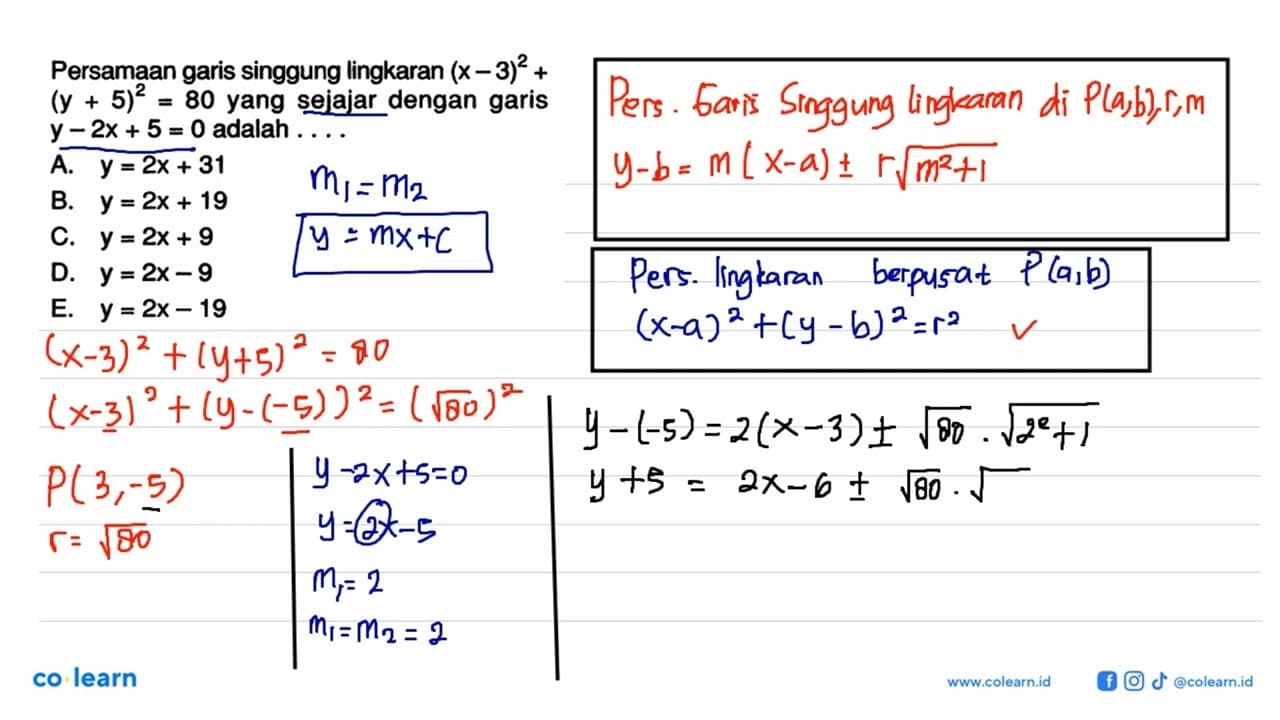 Persamaan garis singgung lingkaran (x – 3)² +
(y + 5)² = 80 yang sejajar dengan garis
y – 2x + 5 = 0 adalah . . . .
A. y = 2x + 31
B. y = 2x + 19
C. y = 2x + 9
D. y = 2x – 9
E. y = 2x – 19
m₁ = m₂
y = mx + c
Pers. Garis Singgung lingkaran di P(a,b), r, m
y-b = m(x-a) ± r√(m²+1)
Pers. lingkaran berpusat P(a,b)
(x-a)² + (y-b)² = r² ✓
(x-3)² + (y+5)² = 80
(x-3)² + (y-(-5))² = (√80)²
P(3,-5)
r = √80
y-2x+5=0
y=2x-5
m₁=2
m₁=m₂=2
y-(-5) = 2(x-3) ± √80 . √(2²+1)
y+5 = 2x-6 ± √80 . √
co learn
www.colearn.id
@colearn.id